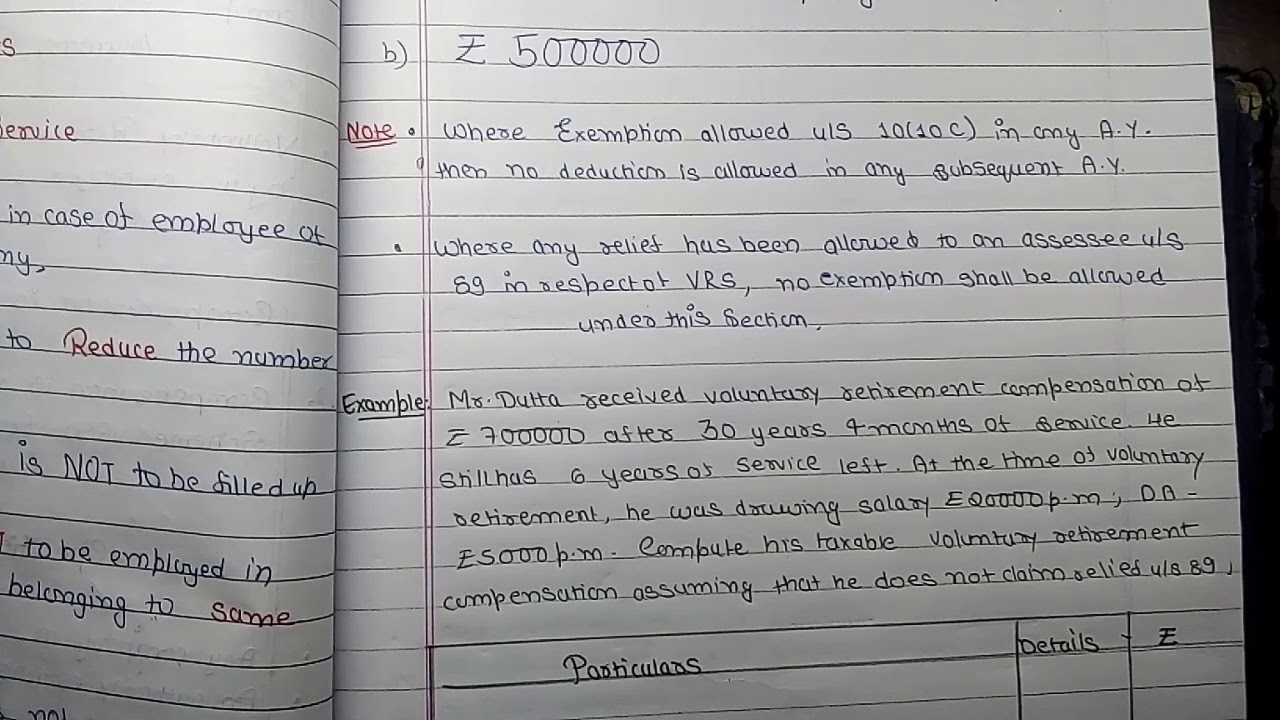 s
ervice
in case of employee of
ny,
to Reduce the number
is NOT to be filled up
to be employed in
belonging to same
b) ₹ 500000
Note • Where Exemption allowed u/s 10(10C) in any A.Y.
then no deduction is allowed in any subsequent A.Y.
• Where any relief has been allowed to an assessee u/s
89 in respect of VRS, no exemption shall be allowed
under this Section.
Example: Mr. Dutta received voluntary retirement compensation of
₹ 700000 after 30 years 4 months of service. He
still has 6 years of service left. At the time of voluntary
retirement, he was drawing salary ₹20000 p.m; DA -
₹5000 p.m. Compute his taxable voluntary retirement
compensation assuming that he does not claim relief u/s 89,
Particulars Details ₹